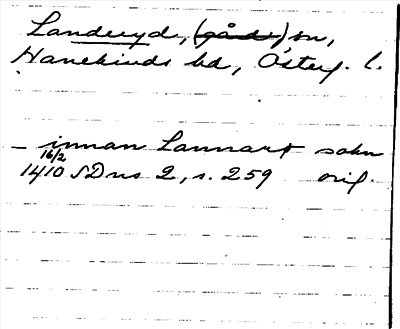 Landeryd, (gård,) sn,
Hanekinds hd, Österg. l.
– innan Lannart sokn
16/2
1410 SDns 2, s. 259 orig.